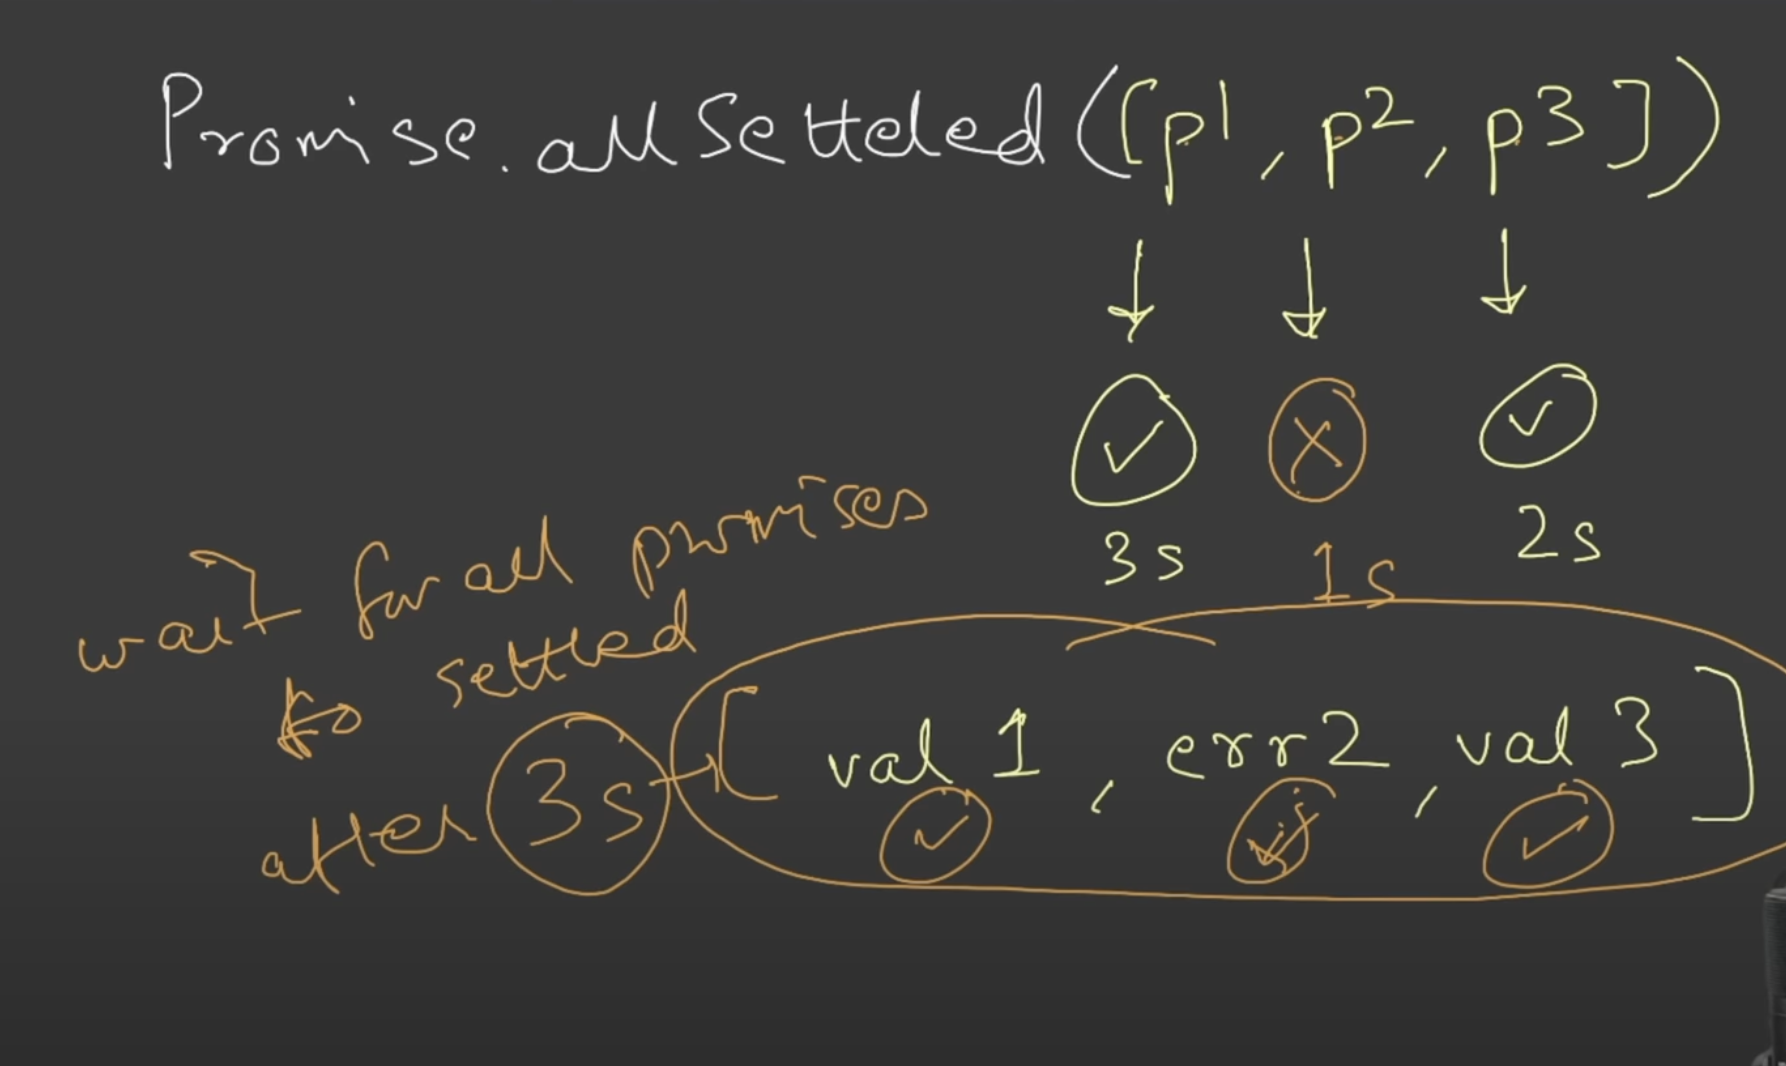 Promise.allSetteled([p1, p2, p3])
3s 1s 2s
wait for all promises
to settled
after 3s [ val 1, err2, val 3 ]